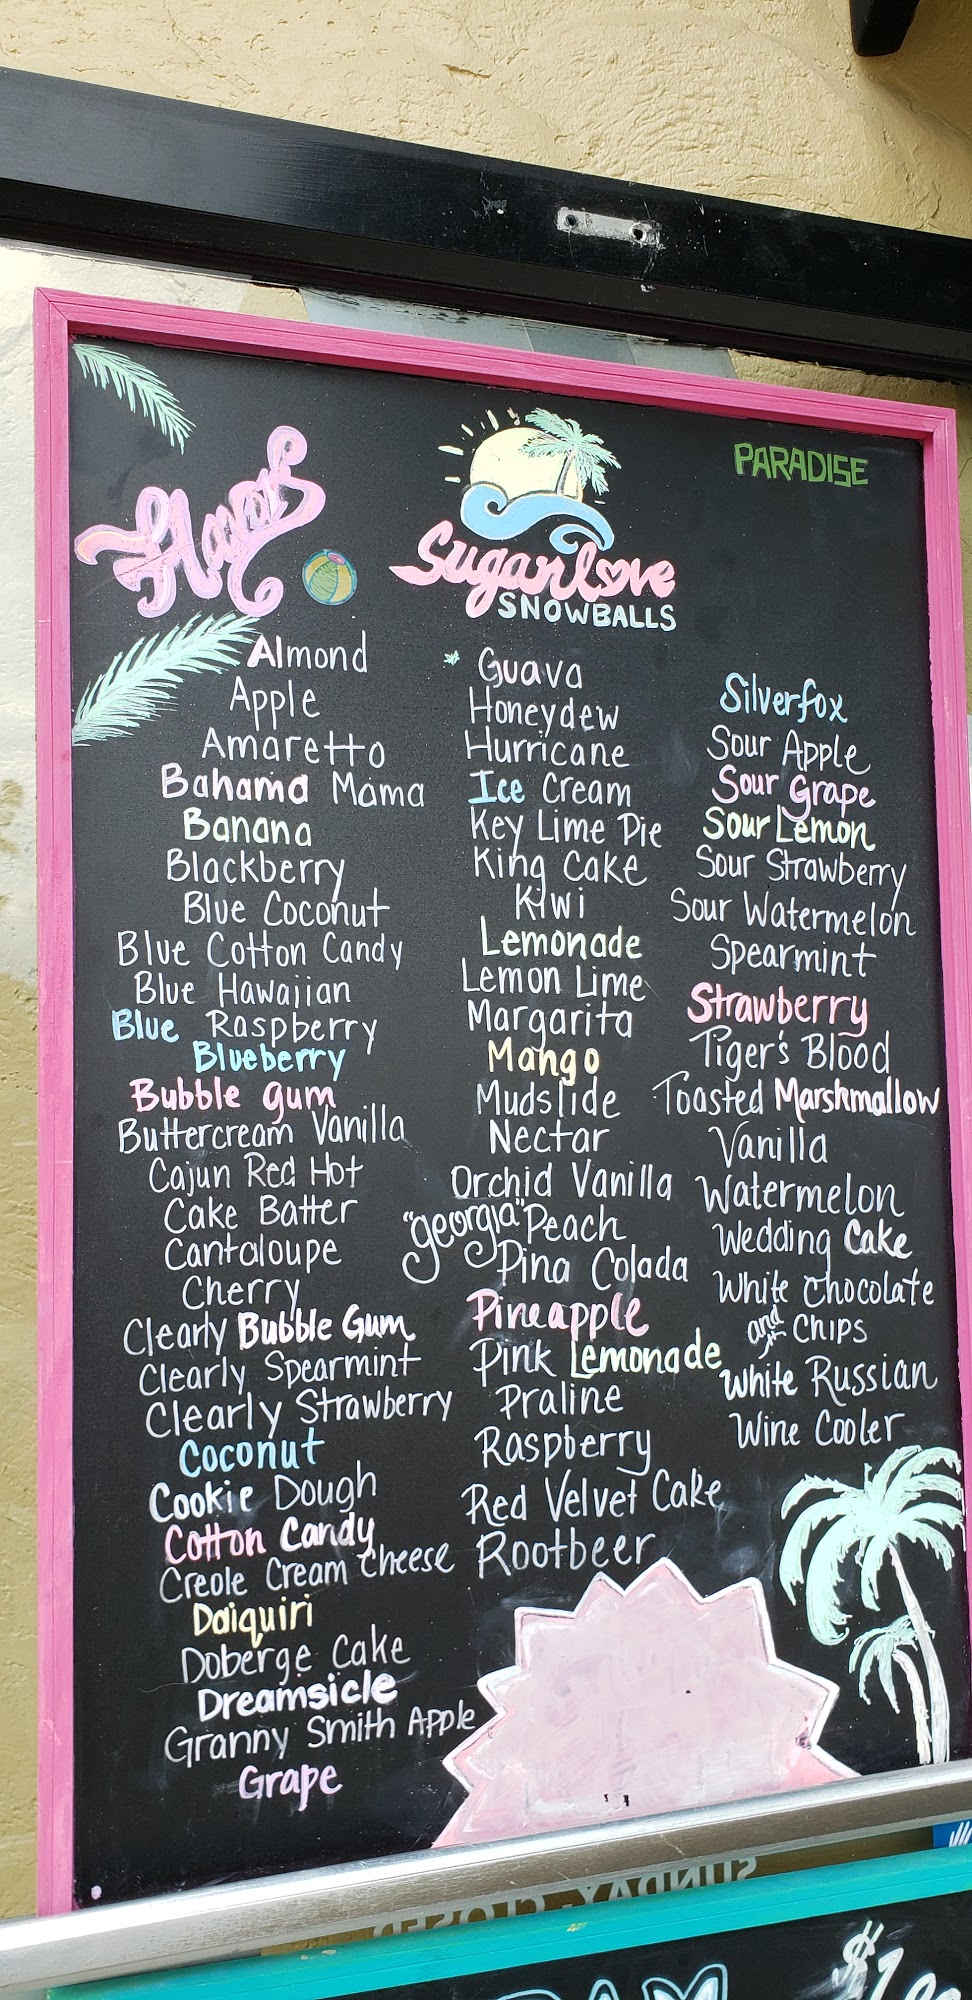 Flavors
Sugarlove
SNOWBALLS
PARADISE
Almond
Apple
Amaretto
Bahama Mama
Banana
Blackberry
Blue Coconut
Blue Cotton Candy
Blue Hawaiian
Blue Raspberry
Blueberry
Bubble gum
Buttercream Vanilla
Cajun Red Hot
Cake Batter
Cantaloupe
Cherry
Clearly Bubble Gum
Clearly Spearmint
Clearly Strawberry
Coconut
Cookie Dough
Cotton Candy
Creole Cream Cheese
Daiquiri
Doberge Cake
Dreamsicle
Granny Smith Apple
Grape
Guava
Honeydew
Hurricane
Ice Cream
Key Lime Pie
King Cake
Kiwi
Lemonade
Lemon Lime
Margarita
Mango
Mudslide
Nectar
Orchid Vanilla
"georgia" Peach
Pina Colada
Pineapple
Pink Lemonade
Praline
Raspberry
Red Velvet Cake
Rootbeer
Silverfox
Sour Apple
Sour Grape
Sour Lemon
Sour Strawberry
Sour Watermelon
Spearmint
Strawberry
Tiger's Blood
Toasted Marshmallow
Vanilla
Watermelon
Wedding Cake
White Chocolate
and CHIPS
White Russian
Wine Cooler
SUNDAY-CLOSED